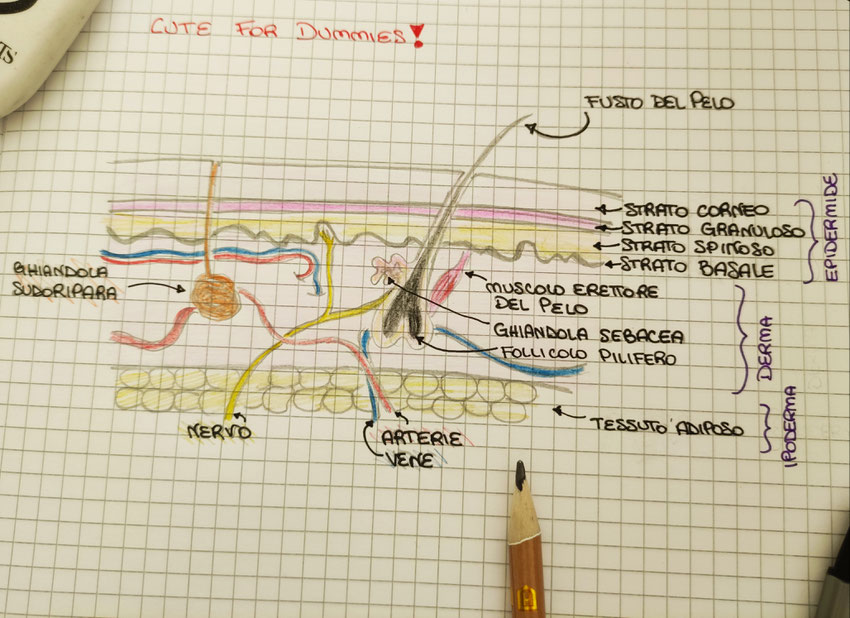 CUTE FOR DUMMIES!
FUSTO DEL PELO
STRATO CORNEO
STRATO GRANULOSO
STRATO SPINOSO
STRATO BASALE
EPIDERMIDE
GHIANDOLA
SUDORIPARA
MUSCOLO ERETTORE
DEL PELO
GHIANDOLA SEBACEA
FOLLICOLO PILIFERO
DERMA
TESSUTO ADIPOSO
IPODERMA
NERVO
ARTERIE
VENE